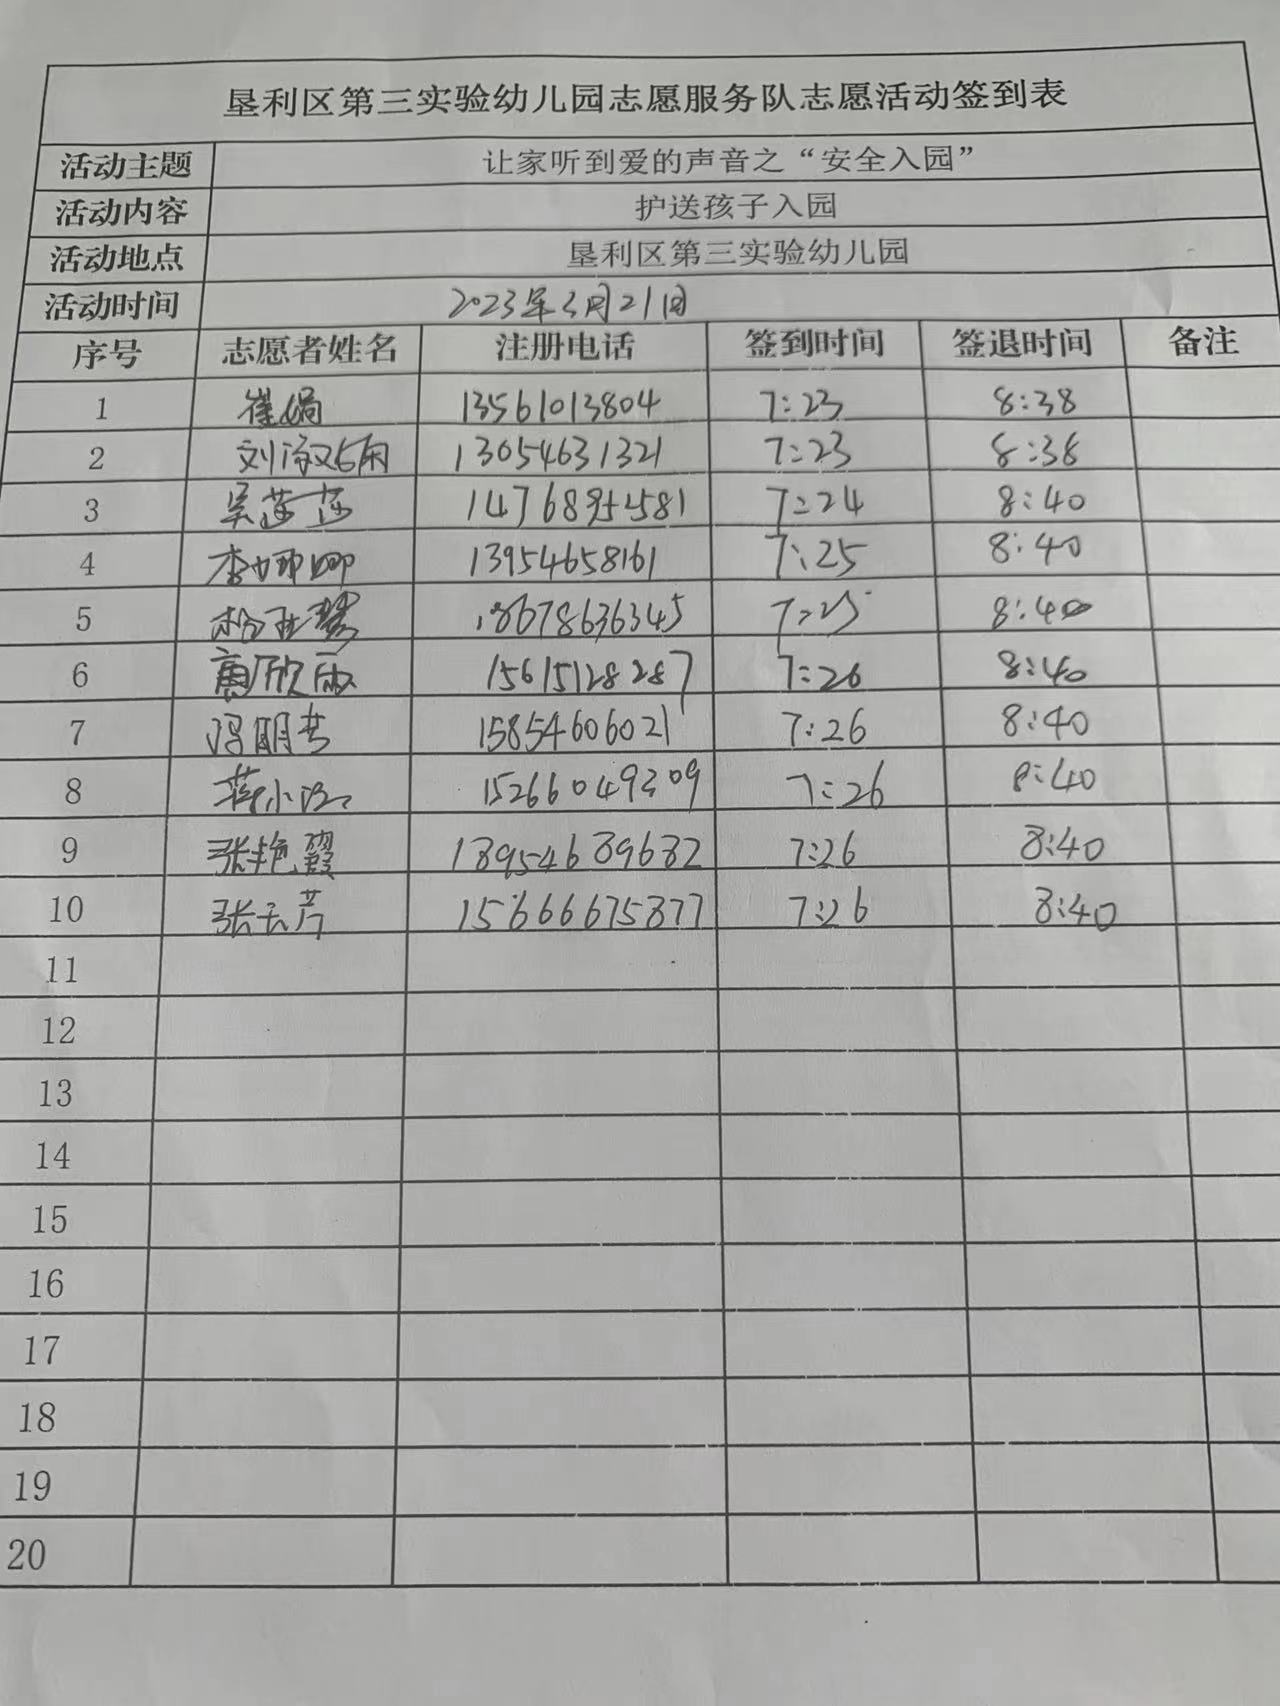 垦利区第三实验幼儿园志愿服务队志愿活动签到表
活动主题 让家听到爱的声音之“安全入园”
活动内容 护送孩子入园
活动地点 垦利区第三实验幼儿园
活动时间 2023年3月21日
序号 志愿者姓名 注册电话 签到时间 签退时间 备注
1 崔娟 13561013804 7:23 8:38
2 刘 13054631321 7:23 8:38
3 吴莎莎 7:24 8:40
4 李娜娜 13954658161 7:25 8:40
5 18678636345 7:25 8:40
6 欣雨 15615128287 7:26 8:40
7 冯明 15854606021 7:26 8:40
8 小 15266049309 7:26 8:40
9 张艳霞 13954639632 7:26 8:40
10 张 15666675377 7:26 8:40
11
12
13
14
15
16
17
18
19
20